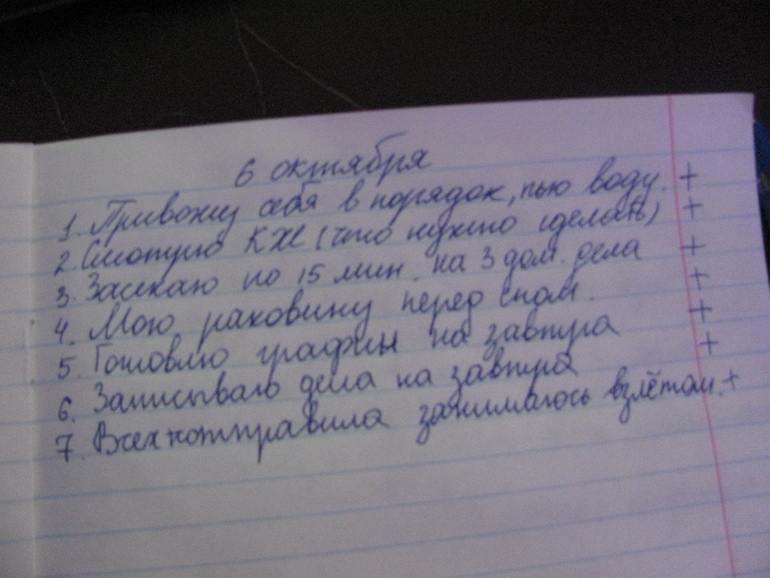 6 октября
1. Привожу себя в порядок, пью воду. +
2. Смотрю КЖ (что нужно сделать) +
3. Засекаю по 15 мин. на 3 дом. дела +
4. Мою раковину перед сном. +
5. Готовлю графин на завтра +
6. Записываю дела на завтра +
7. Всех отправила занимаюсь взлётом. +